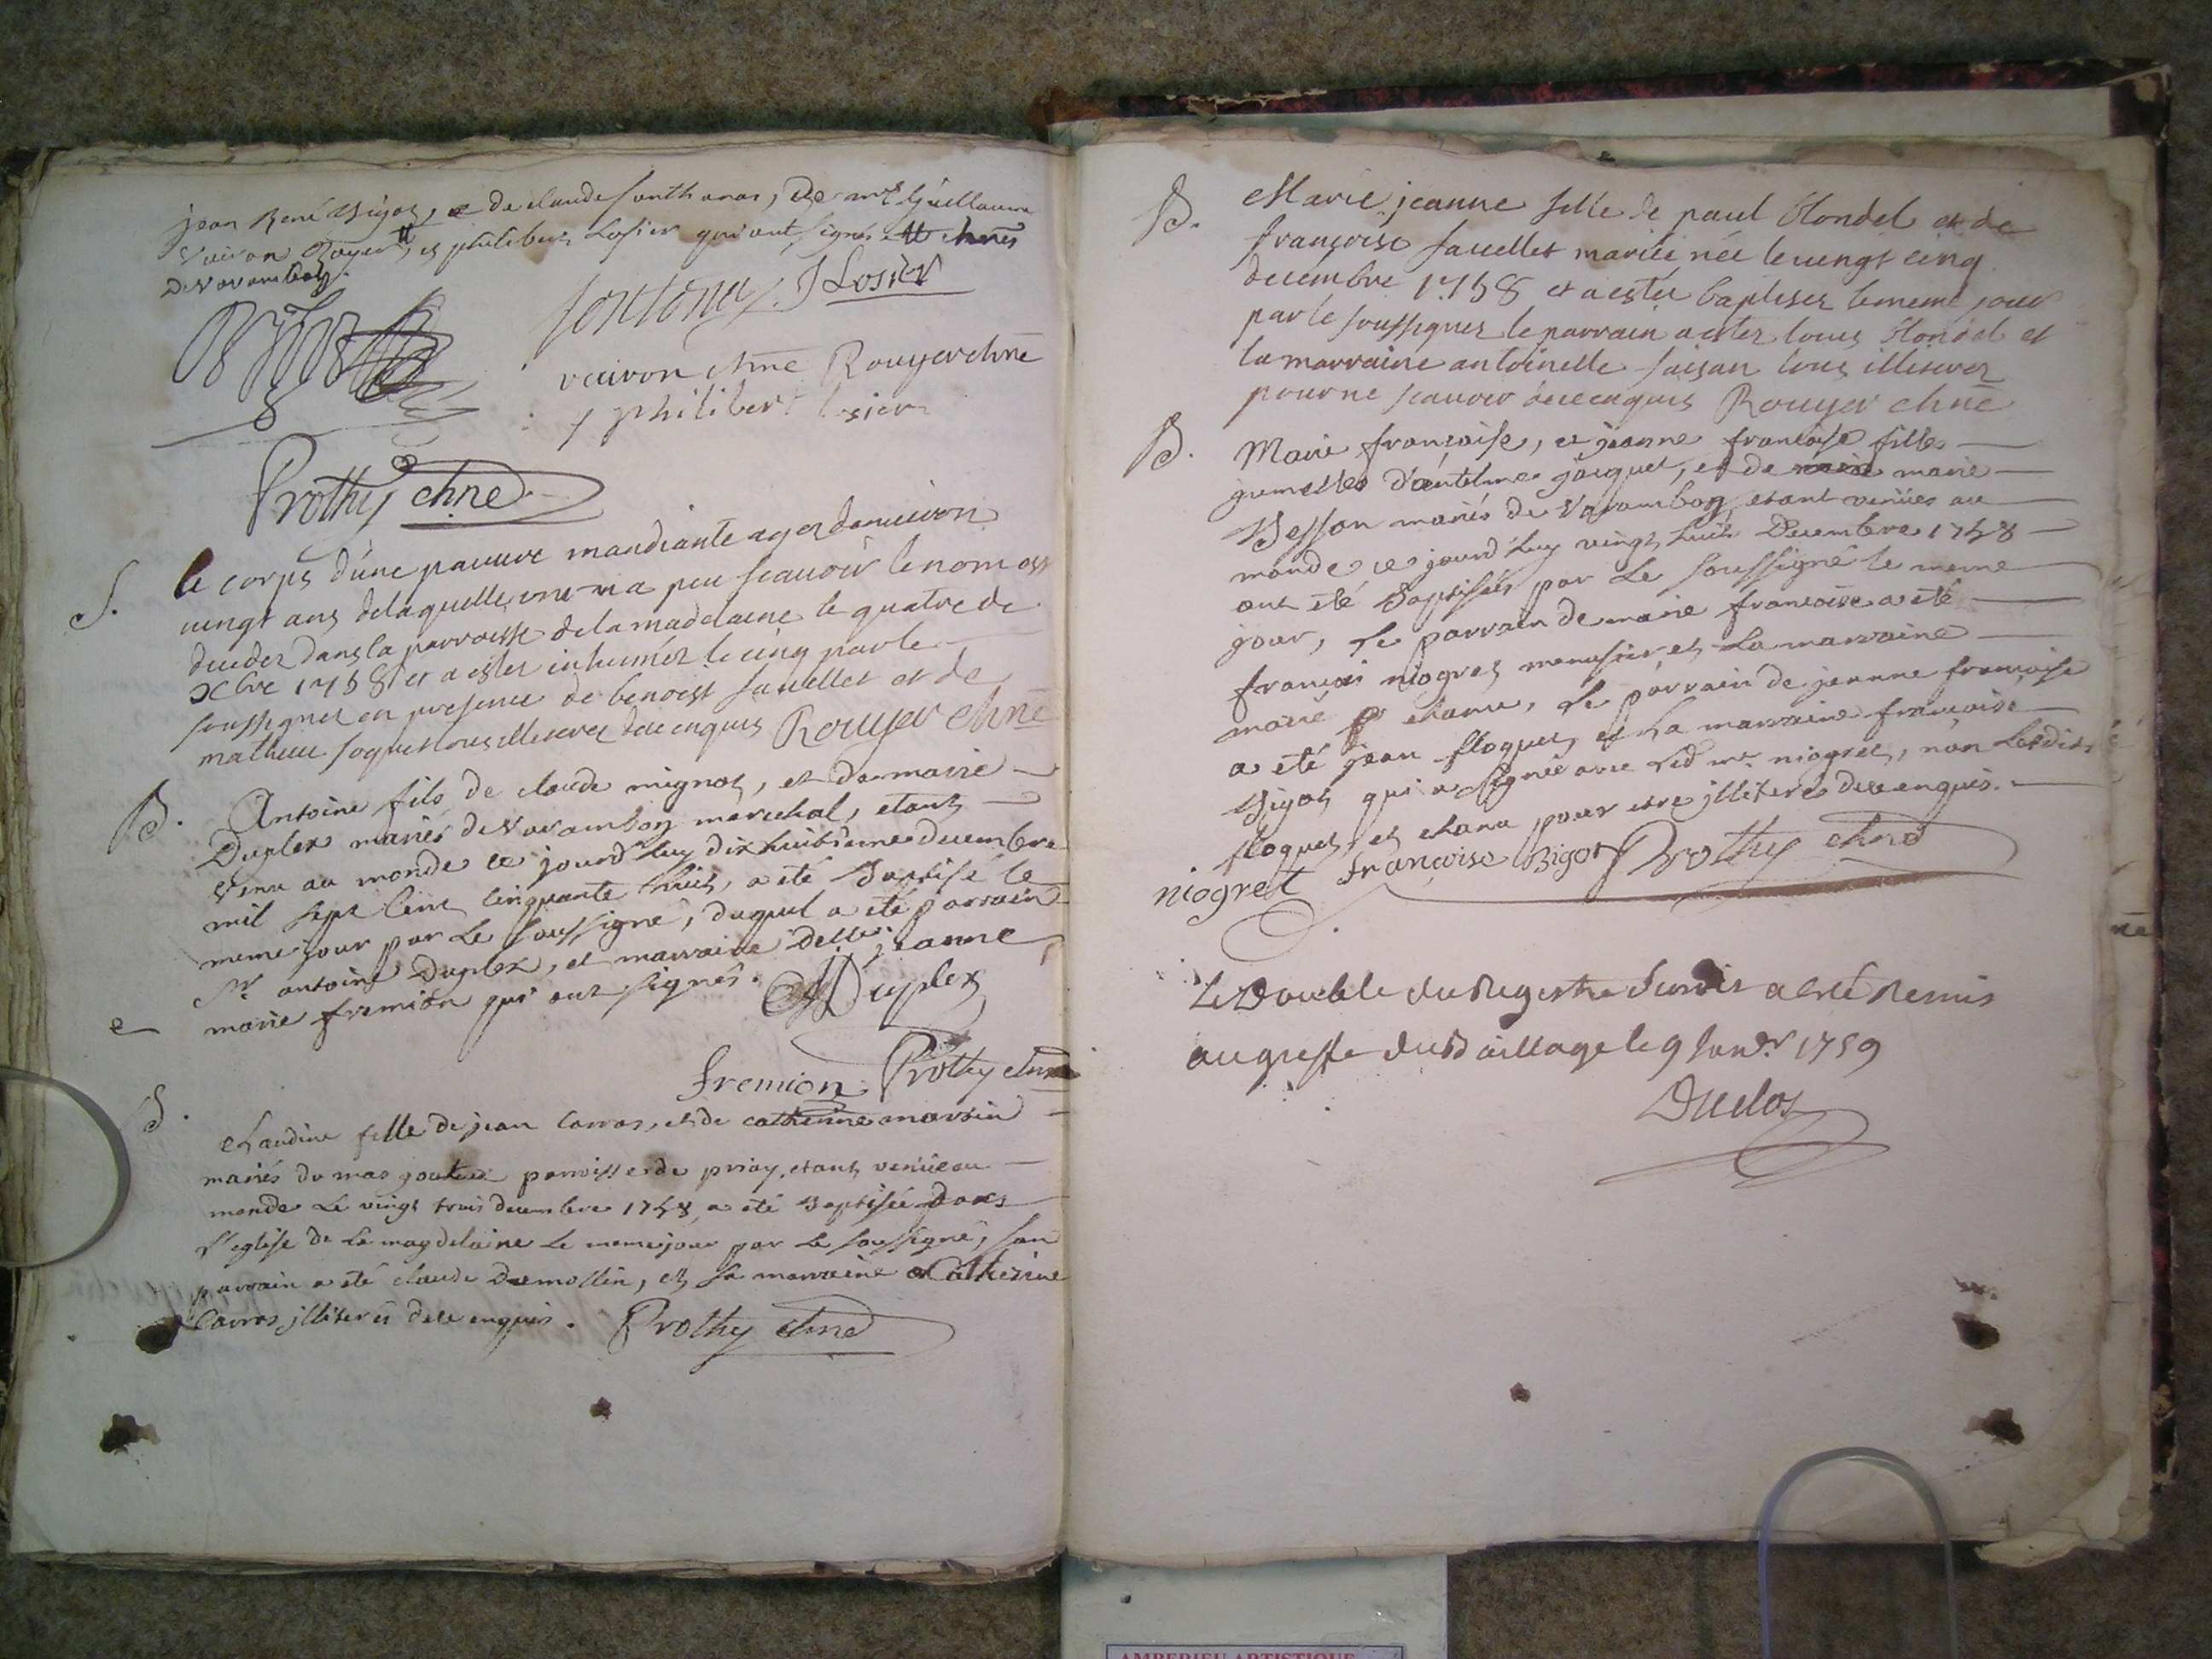 jean René Bigot, et de claude fonthanas, de mre Guillaume
Vuiron Royer, et philibert Losier qui ont signés chnes
De Varambon.
fontana J Losier
vuiron chne Rouyer chne
philibert losier
Prothy chne
S. le corps d'une pauvre mandiante agez denviron
vingt ans delaquelle peu scauoir le nom est
decedez dans la parroisse de la madelaine le quatre de
Xbre 1758 et a estez inhumez le cinq par le
soussignez en presence de benoist fauellet et de
mathieu foquet tous illiterez de ce enquis Rouyer chne
B. Antoine fils de claude mignot, et de marie
Duplex mariés de Varambon marechal, etant
Venu au monde ce jourd'huy dix huitieme decembre
mil sept cent cinquante huit, a été baptisé le
meme jour par le soussigné, duquel a été parrain
Sr. antoine Duplex, et marraine delle. jeanne
marie fremion qui ont signés. Duplex
fremion Prothy chne
claudine fille de jean Carras, et de catherine marvin
mariés du mas parroisse de priay, etant venüe au
monde Le vingt trois decembre 1758, a été baptisée dans
l'eglise de La magdelaine Le meme jour par Le soussigné, son
parrain a été claude Dumollin, et sa marraine Catherine
Carras, jlliterés de ce enquis. Prothy chne
B. Marie jeanne fille de paul blondel et de
francoise fauellet mariée née le vingt cinq
decembre 1758 et a estée baptisez le meme jour
par le soussignez le parrain a estez louis blondel et
la marraine antoinette faisan tous illiterez
pour ne scauoir de ce enquis Rouyer chne
B. Marie francoise, et jeanne francoise filles
gumelles d'antelme jacquet, et de marie
Besson mariés de Varambon, etant venües au
monde ce jourd'huy vingt huit Decembre 1758
ont été baptisées par Le soussigné le meme
jour, Le parrain de marie francoise a été
francois niogret menusier et La marraine
marie chanu, Le parrain de jeanne francoise
a été jean floquet, et La marraine francoise
Bigot qui a signée avec Led. mr. niogret, non Lesdits
floquet, et chanu pour etre jlliterés de ce enquis.
niogret françoise Bigot Prothy chne
Le Double du Registre a Esté Remis
au greffe du Bailliage le 9 Janvr 1759
Duclos
AMBERIEU ARTISTIQUE